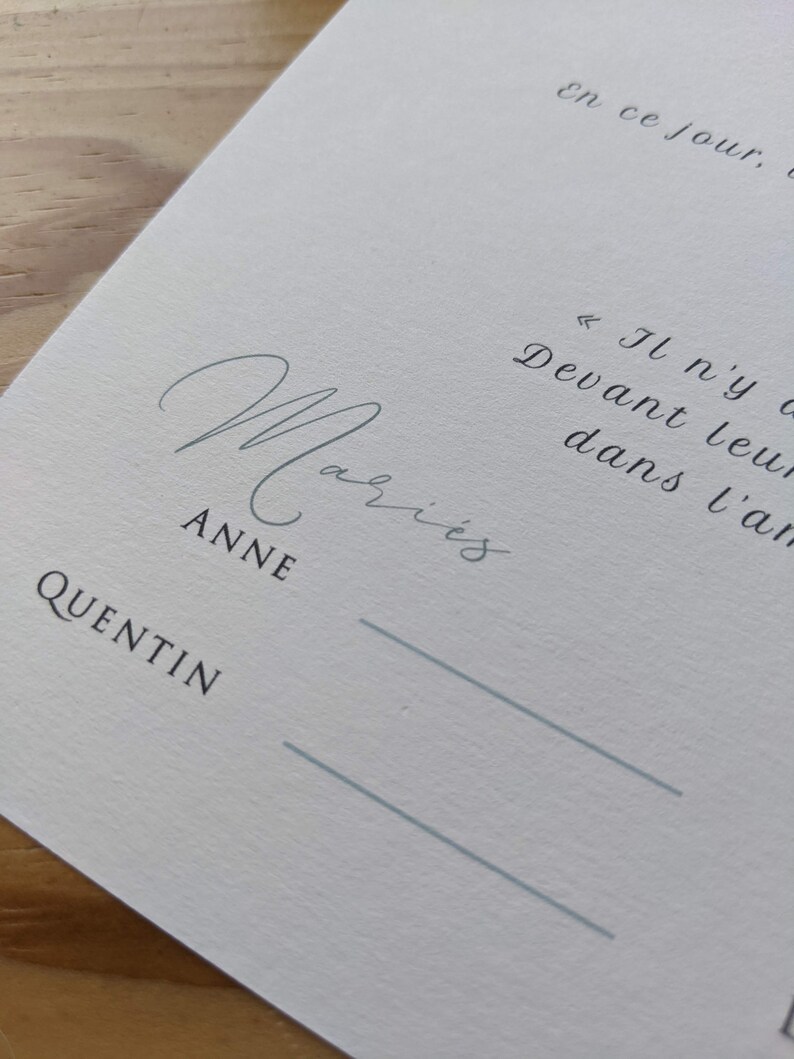 En ce jour,
« Il n'y
Devant
dans
Mariés
ANNE
QUENTIN